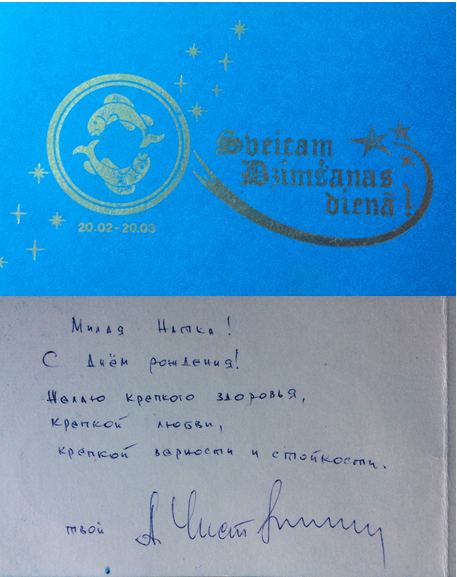 Sveicam
Dzimšanas
dienā!
20.02-20.03
Милая Натка!
С Днём рождения!
Желаю крепкого здоровья,
крепкой любви,
крепкой верности и стойкости.
твой А. Чист